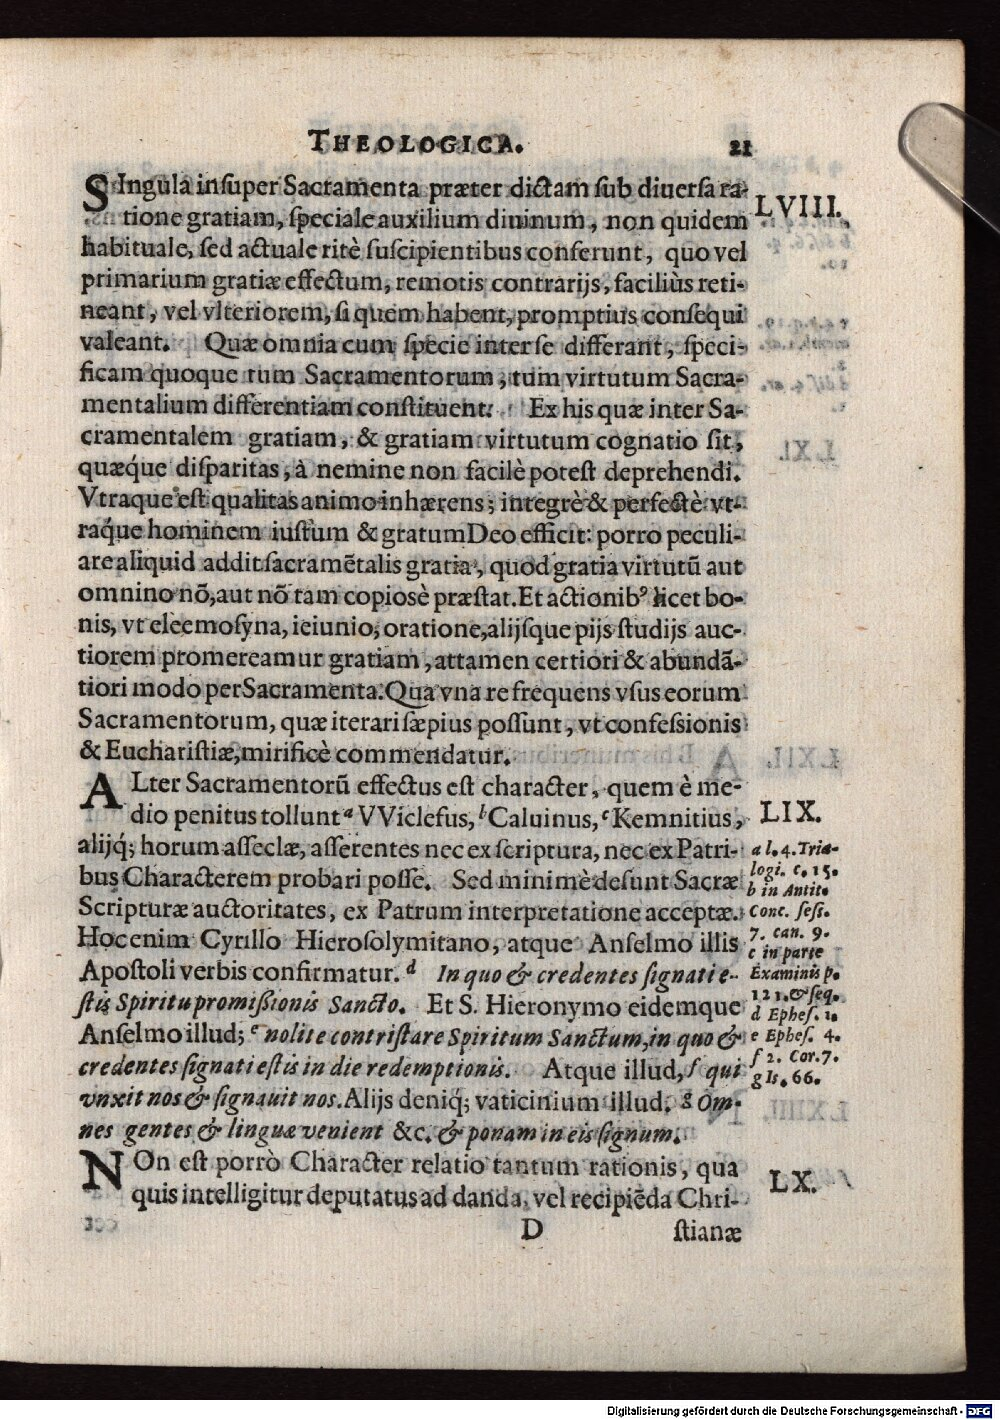 THEOLOGICA. 21
SIngula insuper Sacramenta præter dictam sub diuersa ra-
tione gratiam, speciale auxilium diuinum, non quidem
LVIII.
habituale, sed actuale ritè suscipientibus conferunt, quo vel
primarium gratiæ effectum, remotis contrarijs, faciliùs reti-
neant, vel vlteriorem, si quem habent, promptius consequi
valeant. Quæ omnia cum specie inter se differant, speci-
ficam quoque tum Sacramentorum, tum virtutum Sacra-
mentalium differentiam constituent. Ex his quæ inter Sa-
cramentalem gratiam, & gratiam virtutum cognatio sit,
quæq́ue disparitas, à nemine non facilè potest deprehendi.
Vtraque est qualitas animo inhærens; integrè & perfectè vt-
raq́ue hominem iustum & gratum Deo efficit: porro peculi-
are aliquid addit sacramẽtalis gratia, quod gratia virtutũ aut
omnino nõ, aut nõ tam copiosè præstat. Et actionibꝰ licet bo-
nis, vt eleemosyna, ieiunio, oratione, alijsque pijs studijs auc-
tiorem promereamur gratiam, attamen certiori & abundã-
tiori modo per Sacramenta. Qua vna re frequens vsus eorum
Sacramentorum, quæ iterari sæpius possunt, vt confessionis
& Eucharistiæ, mirificè commendatur.
ALter Sacramentorũ effectus est character, quem è me-
dio penitus tollunt a VViclefus, b Caluinus, c Kemnitius,
LIX.
alijq́; horum asseclæ, asserentes nec ex scriptura, nec ex Patri-
bus Characterem probari posse. Sed minimè desunt Sacræ
Scripturæ auctoritates, ex Patrum interpretatione acceptæ.
Hoc enim Cyrillo Hierosolymitano, atque Anselmo illis
Apostoli verbis confirmatur. d In quo & credentes signati e-
stis Spiritu promißionis Sancto. Et S. Hieronymo eidemque
Anselmo illud; e nolite contristare Spiritum Sanctum, in quo &
credentes signati estis in die redemptionis. Atque illud, f qui
vnxit nos & signauit nos. Alijs deniq́; vaticinium illud. g Om-
nes gentes & linguæ venient &c. & ponam in eis signum.
a l. 4. Tria-
logi. c. 15.
b in Antit.
Conc. sess.
7. can. 9.
c in parte
Examinis p.
121. & seq.
d Ephes. 1.
e Ephes. 4.
f 2. Cor. 7.
g Is. 66.
NOn est porrò Character relatio tantum rationis, qua
quis intelligitur deputatus ad danda, vel recipiẽda Chri-
LX.
D stianæ
Digitalisierung gefördert durch die Deutsche Forschungsgemeinschaft - DFG